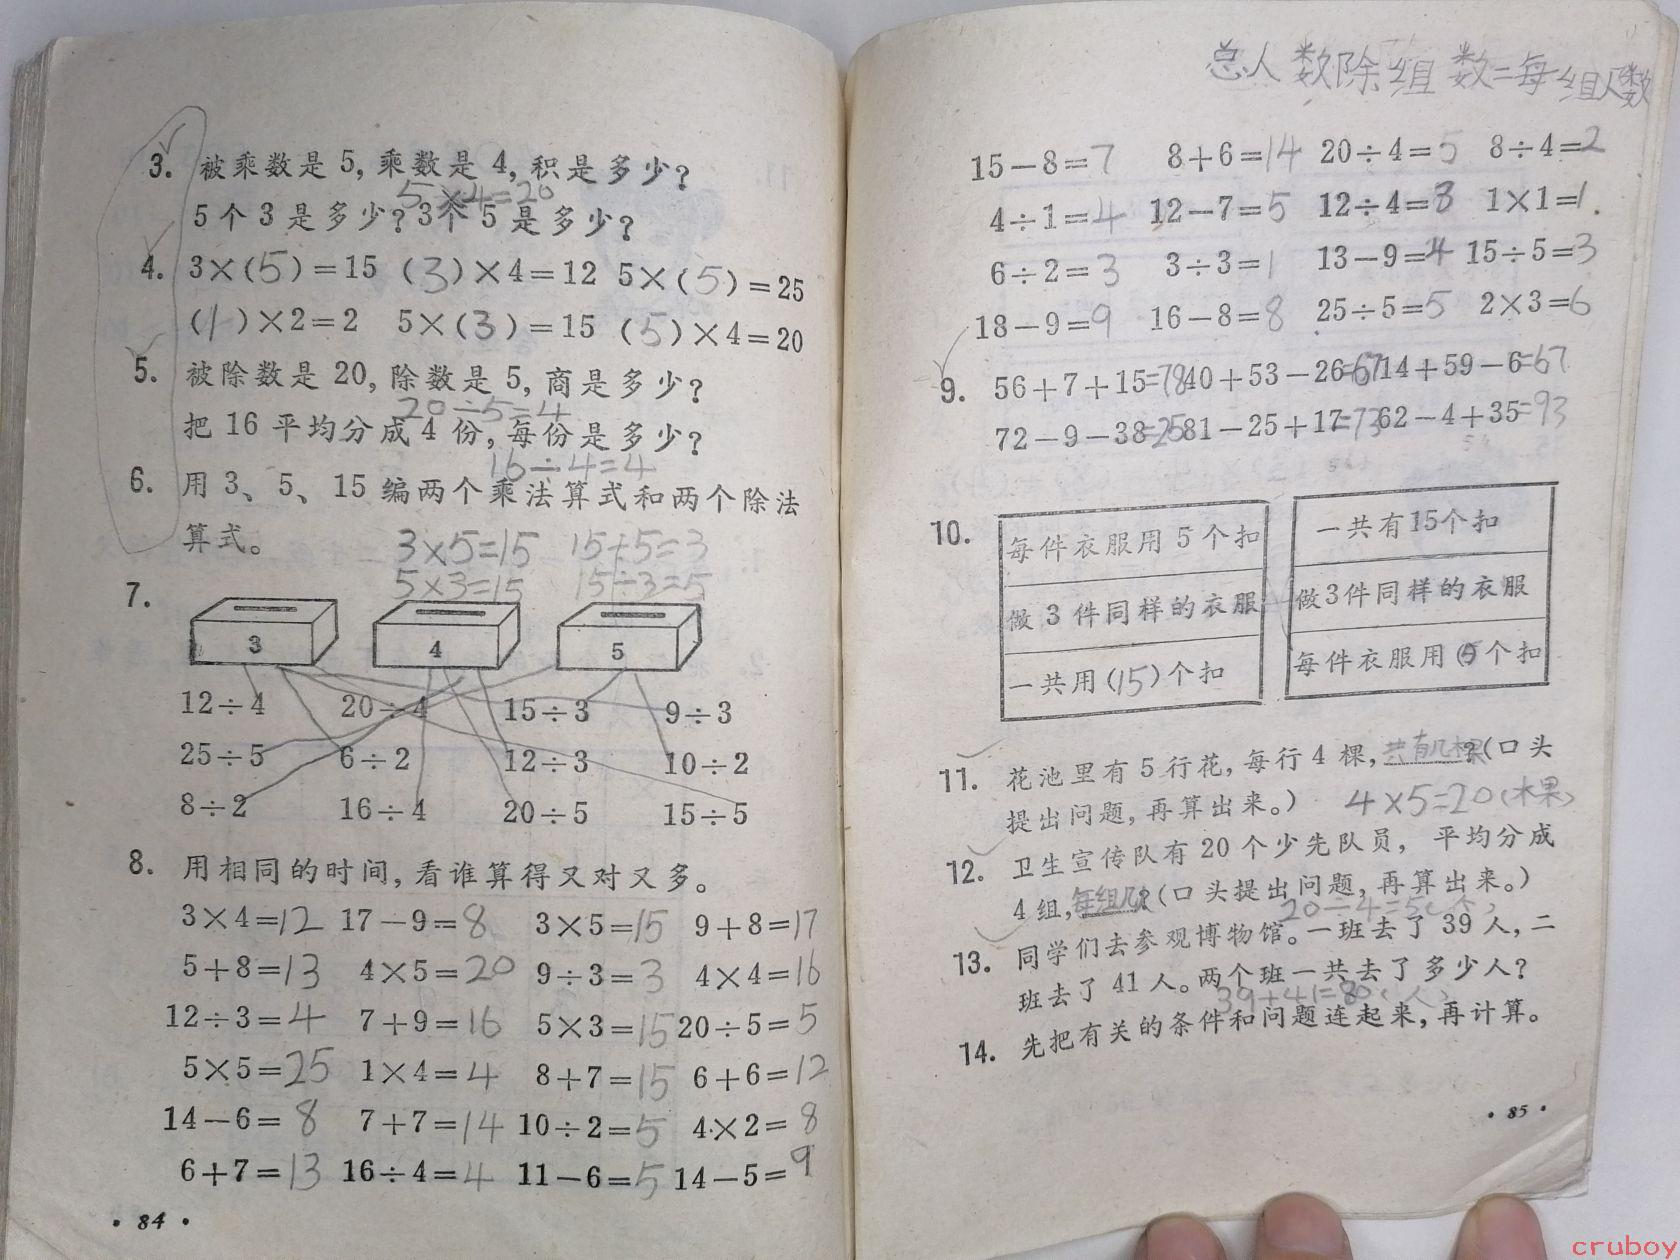 3. 被乘数是 5, 乘数是 4, 积是多少?
5×4=20
5 个 3 是多少? 3 个 5 是多少?
4. 3×(5)=15 (3)×4=12 5×(5)=25
(1)×2=2 5×(3)=15 (5)×4=20
5. 被除数是 20, 除数是 5, 商是多少?
20÷5=4
把 16 平均分成 4 份, 每份是多少?
16÷4=4
6. 用 3、5、15 编两个乘法算式和两个除法
算式。
3×5=15 15÷5=3
5×3=15 15÷3=5
7.
3 4 5
12÷4 20÷4 15÷3 9÷3
25÷5 6÷2 12÷3 10÷2
8÷2 16÷4 20÷5 15÷5
8. 用相同的时间, 看谁算得又对又多。
3×4=12 17-9=8 3×5=15 9+8=17
5+8=13 4×5=20 9÷3=3 4×4=16
12÷3=4 7+9=16 5×3=15 20÷5=5
5×5=25 1×4=4 8+7=15 6+6=12
14-6=8 7+7=14 10÷2=5 4×2=8
6+7=13 16÷4=4 11-6=5 14-5=9
• 84 •
总人数除组数=每组人数
15-8=7 8+6=14 20÷4=5 8÷4=2
4÷1=4 12-7=5 12÷4=3 1×1=1
6÷2=3 3÷3=1 13-9=4 15÷5=3
18-9=9 16-8=8 25÷5=5 2×3=6
9. 56+7+15=78 40+53-26=67 14+59-6=67
72-9-38=25 81-25+17=73 62-4+35=93
10.
每件衣服用 5 个扣
做 3 件同样的衣服
一共用(15)个扣
一共有15个扣
做3件同样的衣服
每件衣服用(5)个扣
11. 花池里有 5 行花, 每行 4 棵, 共有几棵?(口头
提出问题, 再算出来。) 4×5=20(棵)
12. 卫生宣传队有 20 个少先队员, 平均分成
4 组, 每组几?(口头提出问题, 再算出来。)
20÷4=5
13. 同学们去参观博物馆。一班去了 39 人, 二
班去了 41 人。两个班一共去了多少人?
39+41=80(人)
14. 先把有关的条件和问题连起来, 再计算。
• 85 •
cruboy